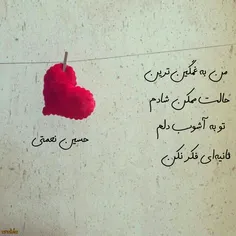 من به غمگین ترین
حالت ممکن شادم
تو به آشوب دلم
ثانیه‌ای فکر نکن
حسین نعمتی